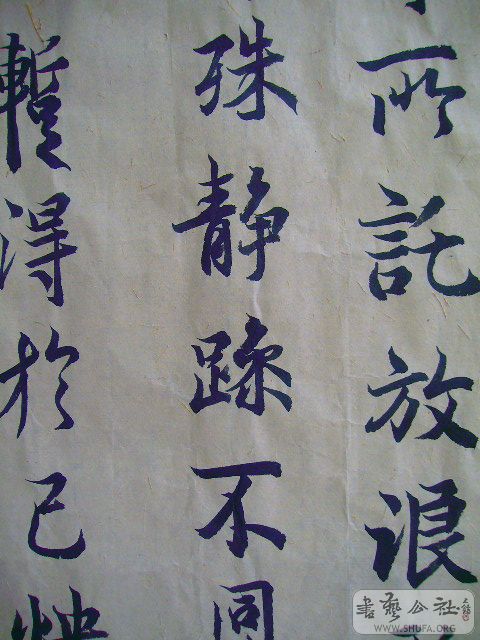 所託放浪
殊静躁不同
暫得於己怏
書藝公社
WWW.SHUFA.ORG